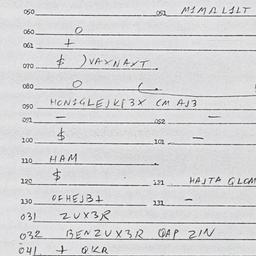 050 051 M1MRL1LT
060 O
061 +
070 $ )VAXNAXT
080 O (
090 HCNSGLEJK[3X CM AJ3
091 — 092 —
100 $ 101 —
110 HAM
120 $ 121 HAJTA QLOM
130 OFHEJB+ 131 —
031 ZUX3R
032 BENZUX3R QAP ZIN
041 + QKR